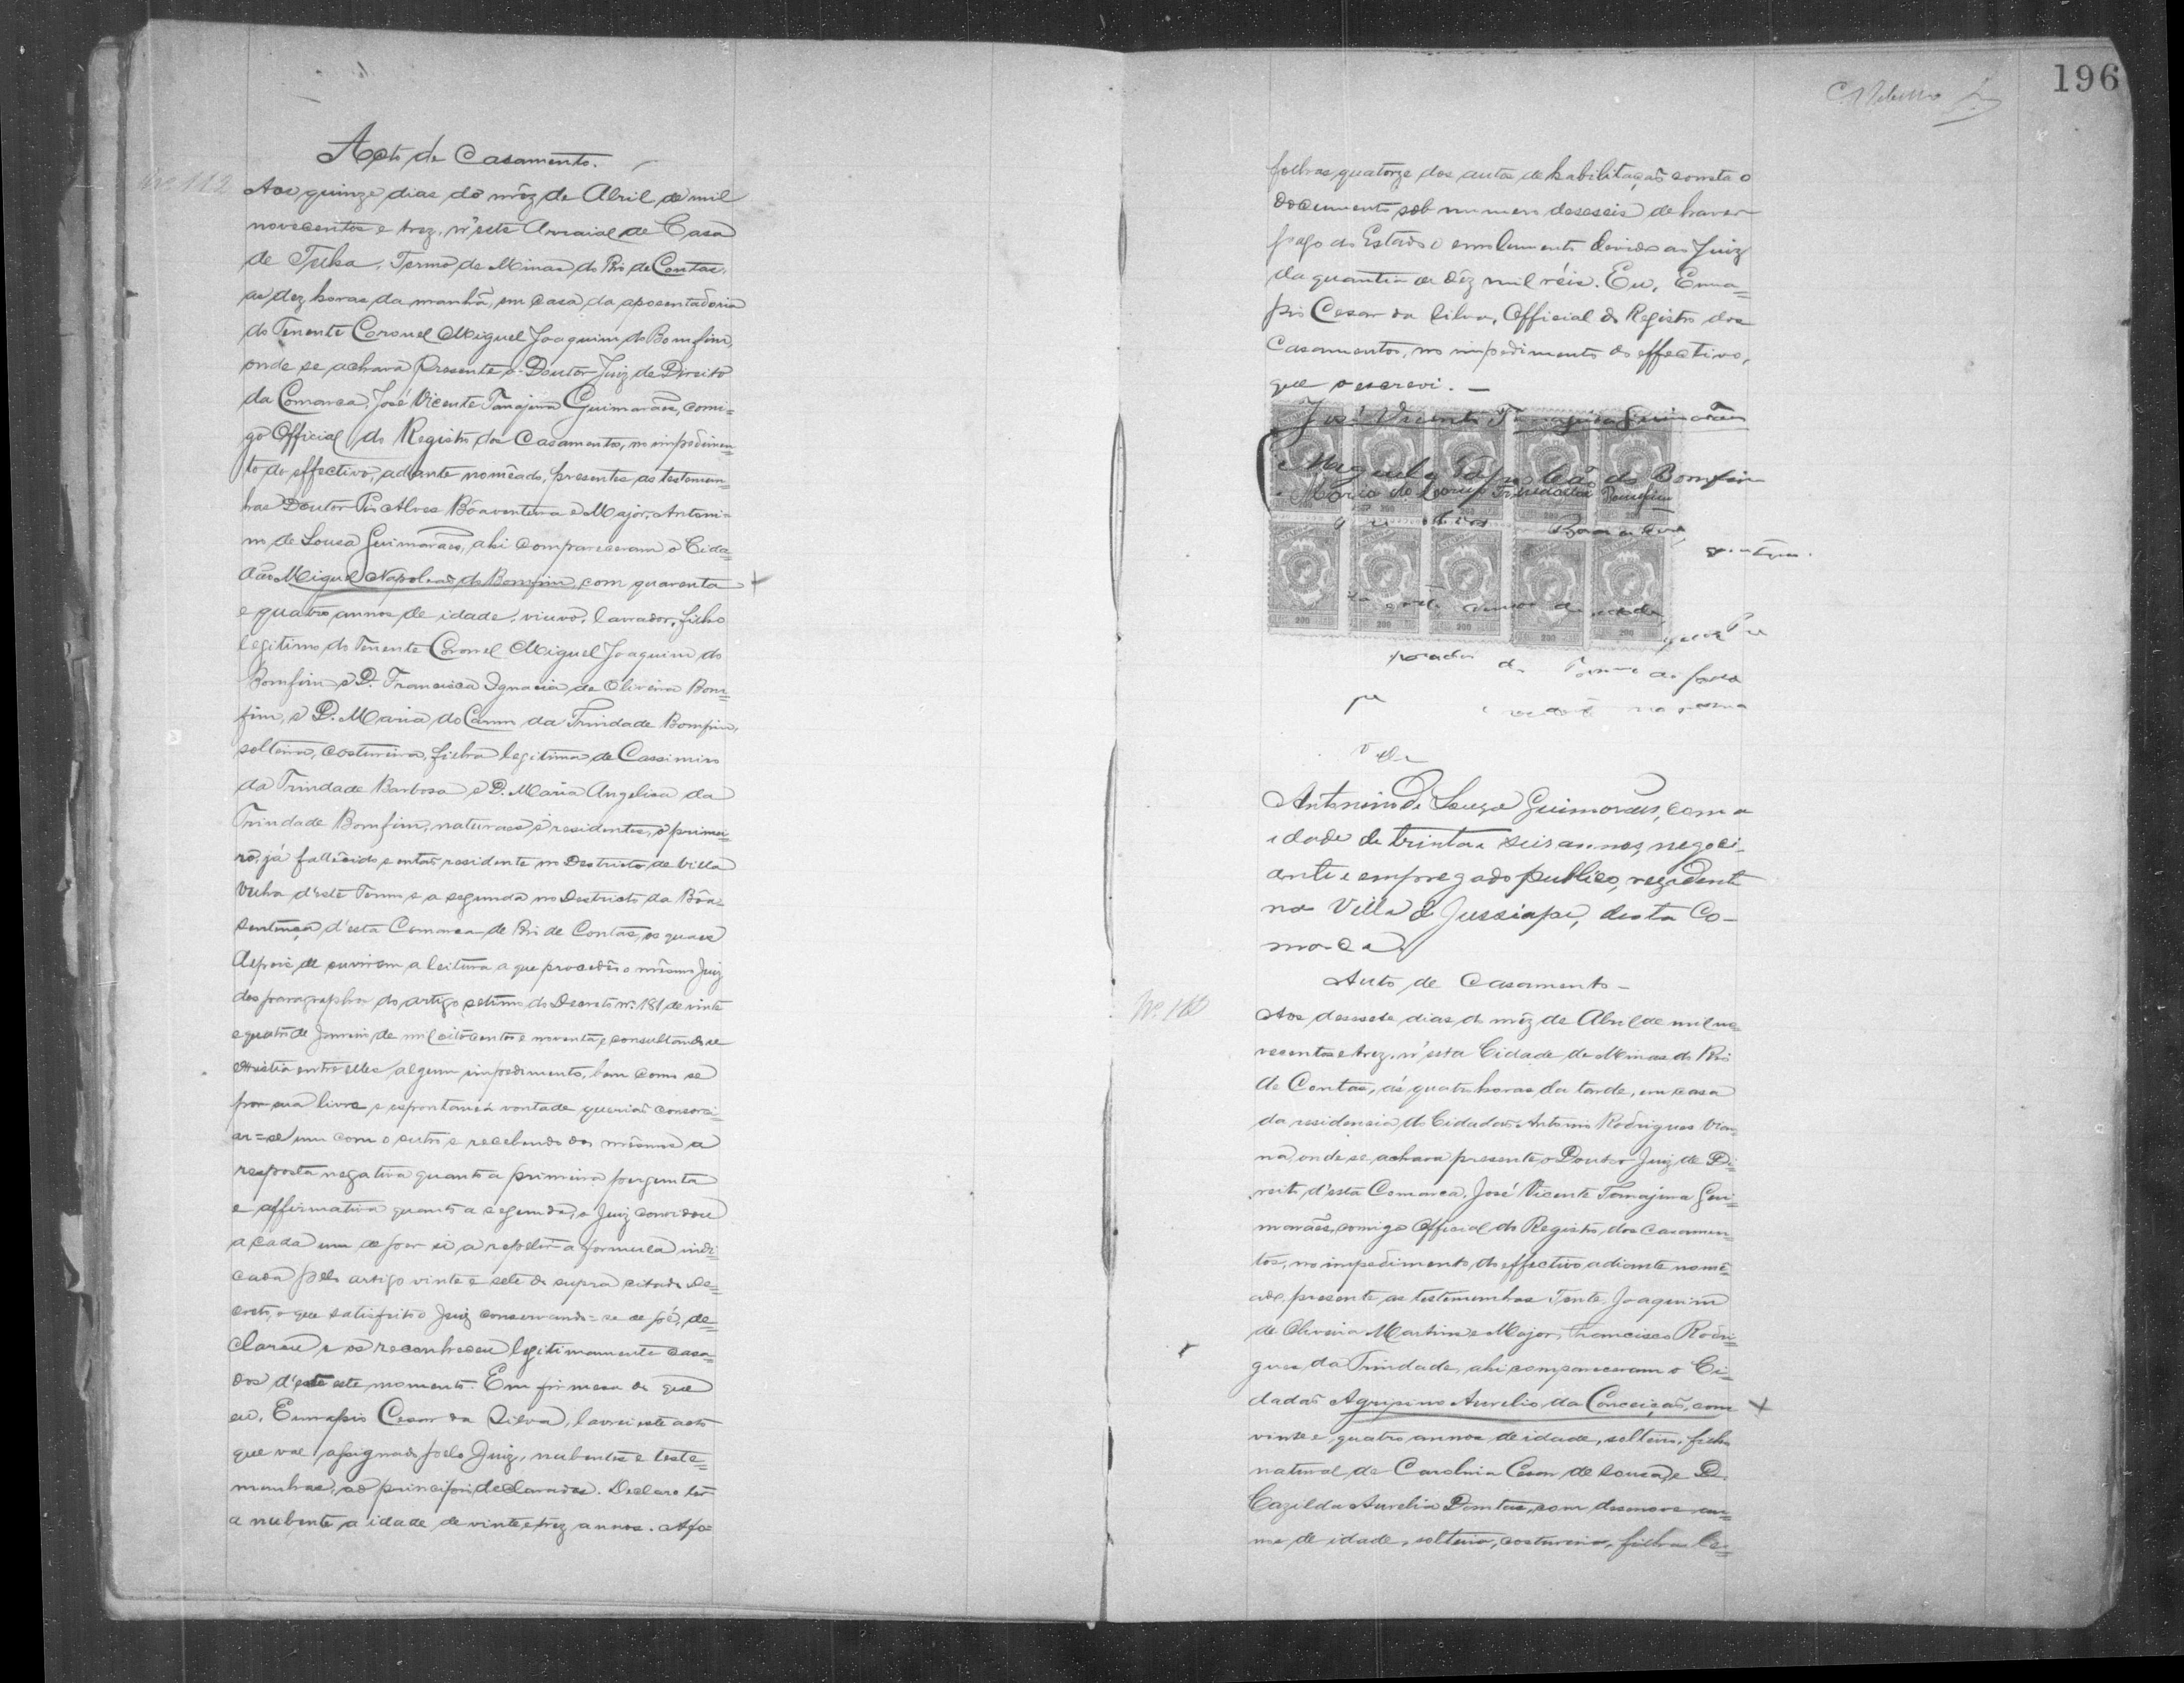 Acto de Casamento.
Nº 112
Aos quinze dias do mêz de Abril de mil
novecentos e trez, n'este Arraial de Casa
de Telha, Termo de Minas do Rio de Contas,
as dez horas da manhã, em casa da aposentadoria
do Tenente Coronel Miguel Joaquim do Bomfim,
onde se achava presente o Doutor Juiz de Direito
da Comarca, José Vicente Tanajura Guimarães, comi-
go Official do Registro dos Casamentos, no impedimen-
to do effectivo, adiante nomêado, presentes as testemu-
nhas Doutor Pio Alves Bôaventura e Major Antoni-
no de Sousa Guimarães, ahi compareceram o Cida-
dão Miguel Napoleão do Bomfim, com quarenta
e quatro annos de idade, viuvo, lavrador, filho
legitimo do Tenente Coronel Miguel Joaquim do
Bomfim e D. Francisca Ignacia de Oliveira Bom-
fim, e D. Maria do Carmo da Trindade Bomfim,
solteira, costureira, filha legitima de Cassimiro
da Trindade Barbosa e D. Maria Angelica da
Trindade Bomfim, naturaes e residentes, o primei-
ro, já fallecido e então residente no Districto de Villa
Velha d'este Termo e a segunda no Districto da Bôa
Sentença d'esta Comarca de Rio de Contas, os quaes
depois de ouvirem a leitura a que procedêo o mesmo Juiz
dos paragraphos do artigo setimo do Decreto nº 181 de vinte
e quatro de Janeiro de mil oitocentos e noventa, e consultando se
existia entre elles algum impedimento, bem como se
por sua livre e espontanea vontade queriaõ consorci-
ar=se um com o outro e recebendo dos mesmos a
resposta negativa quanto a primeira pergunta
e affirmativa quanto a segunda, o Juiz convidou
a cada um de per si a repetir a formula indi-
cada pelo artigo vinte e sete do supra citado De-
creto, o que satisfeito o Juiz conservando=se de pé, de-
clarou e os reconheceu legitimamente casa-
dos d'este momento. Em firmeza do que
eu, Eunapio Cesar da Silva, lavrei este acto
que vae assignado pelo Juiz, nubentes e teste-
munhas, ao principio declarados. Declaro ter
a nubente a idade de vinte e trez annos. A fo-
196
folhas quatorze dos autos de habilitação consta o
documento sob numero deseseis de haver
pago ao Estado o emolumento devido ao Juiz
da quantia de dêz mil réis. Eu, Euna-
pio Cesar da Silva, Official do Registro dos
Casamentos, no impedimento do effectivo,
que o escrevi. —
José Vicente Tanajura Guimarães
Miguel Napoleão do Bomfim
Maria do Carmo Trindade Bomfim
200 200 200 200 200
200 200 200 200 200
Antonino de Souza Guimarães, com a
idade de trinta e seis annos, negoci-
ante e empregado publico, rezidente
na Villa de Jussiape, desta Co-
marca.
Auto de Casamento —
Aos desesete dias do mêz de Abril de mil no-
vecentos e trez, n'esta Cidade de Minas do Rio
de Contas, ás quatro horas da tarde, em casa
da residencia do Cidadão Antonio Rodrigues Vian-
na, onde se achava presente o Doutor Juiz de Di-
reito d'esta Comarca, José Vicente Tanajura Gui-
marães, comigo Official do Registro dos Casamen-
tos, no impedimento do effectivo adiante nomê-
ado, presente as testemunhas Tente. Joaquim
de Oliveira Martins e Major Francisco Rodri-
gues da Trindade, ahi compareceram o Ci-
dadaõ Agripino Aurelio da Conceição, com
vinte e quatro annos de idade, solteiro, filho
natural de Carolina Cesar de Sousa, e D.
Cazilda Aurelia Dantas, com desenove an-
nos de idade, solteira, costureira, filha le-